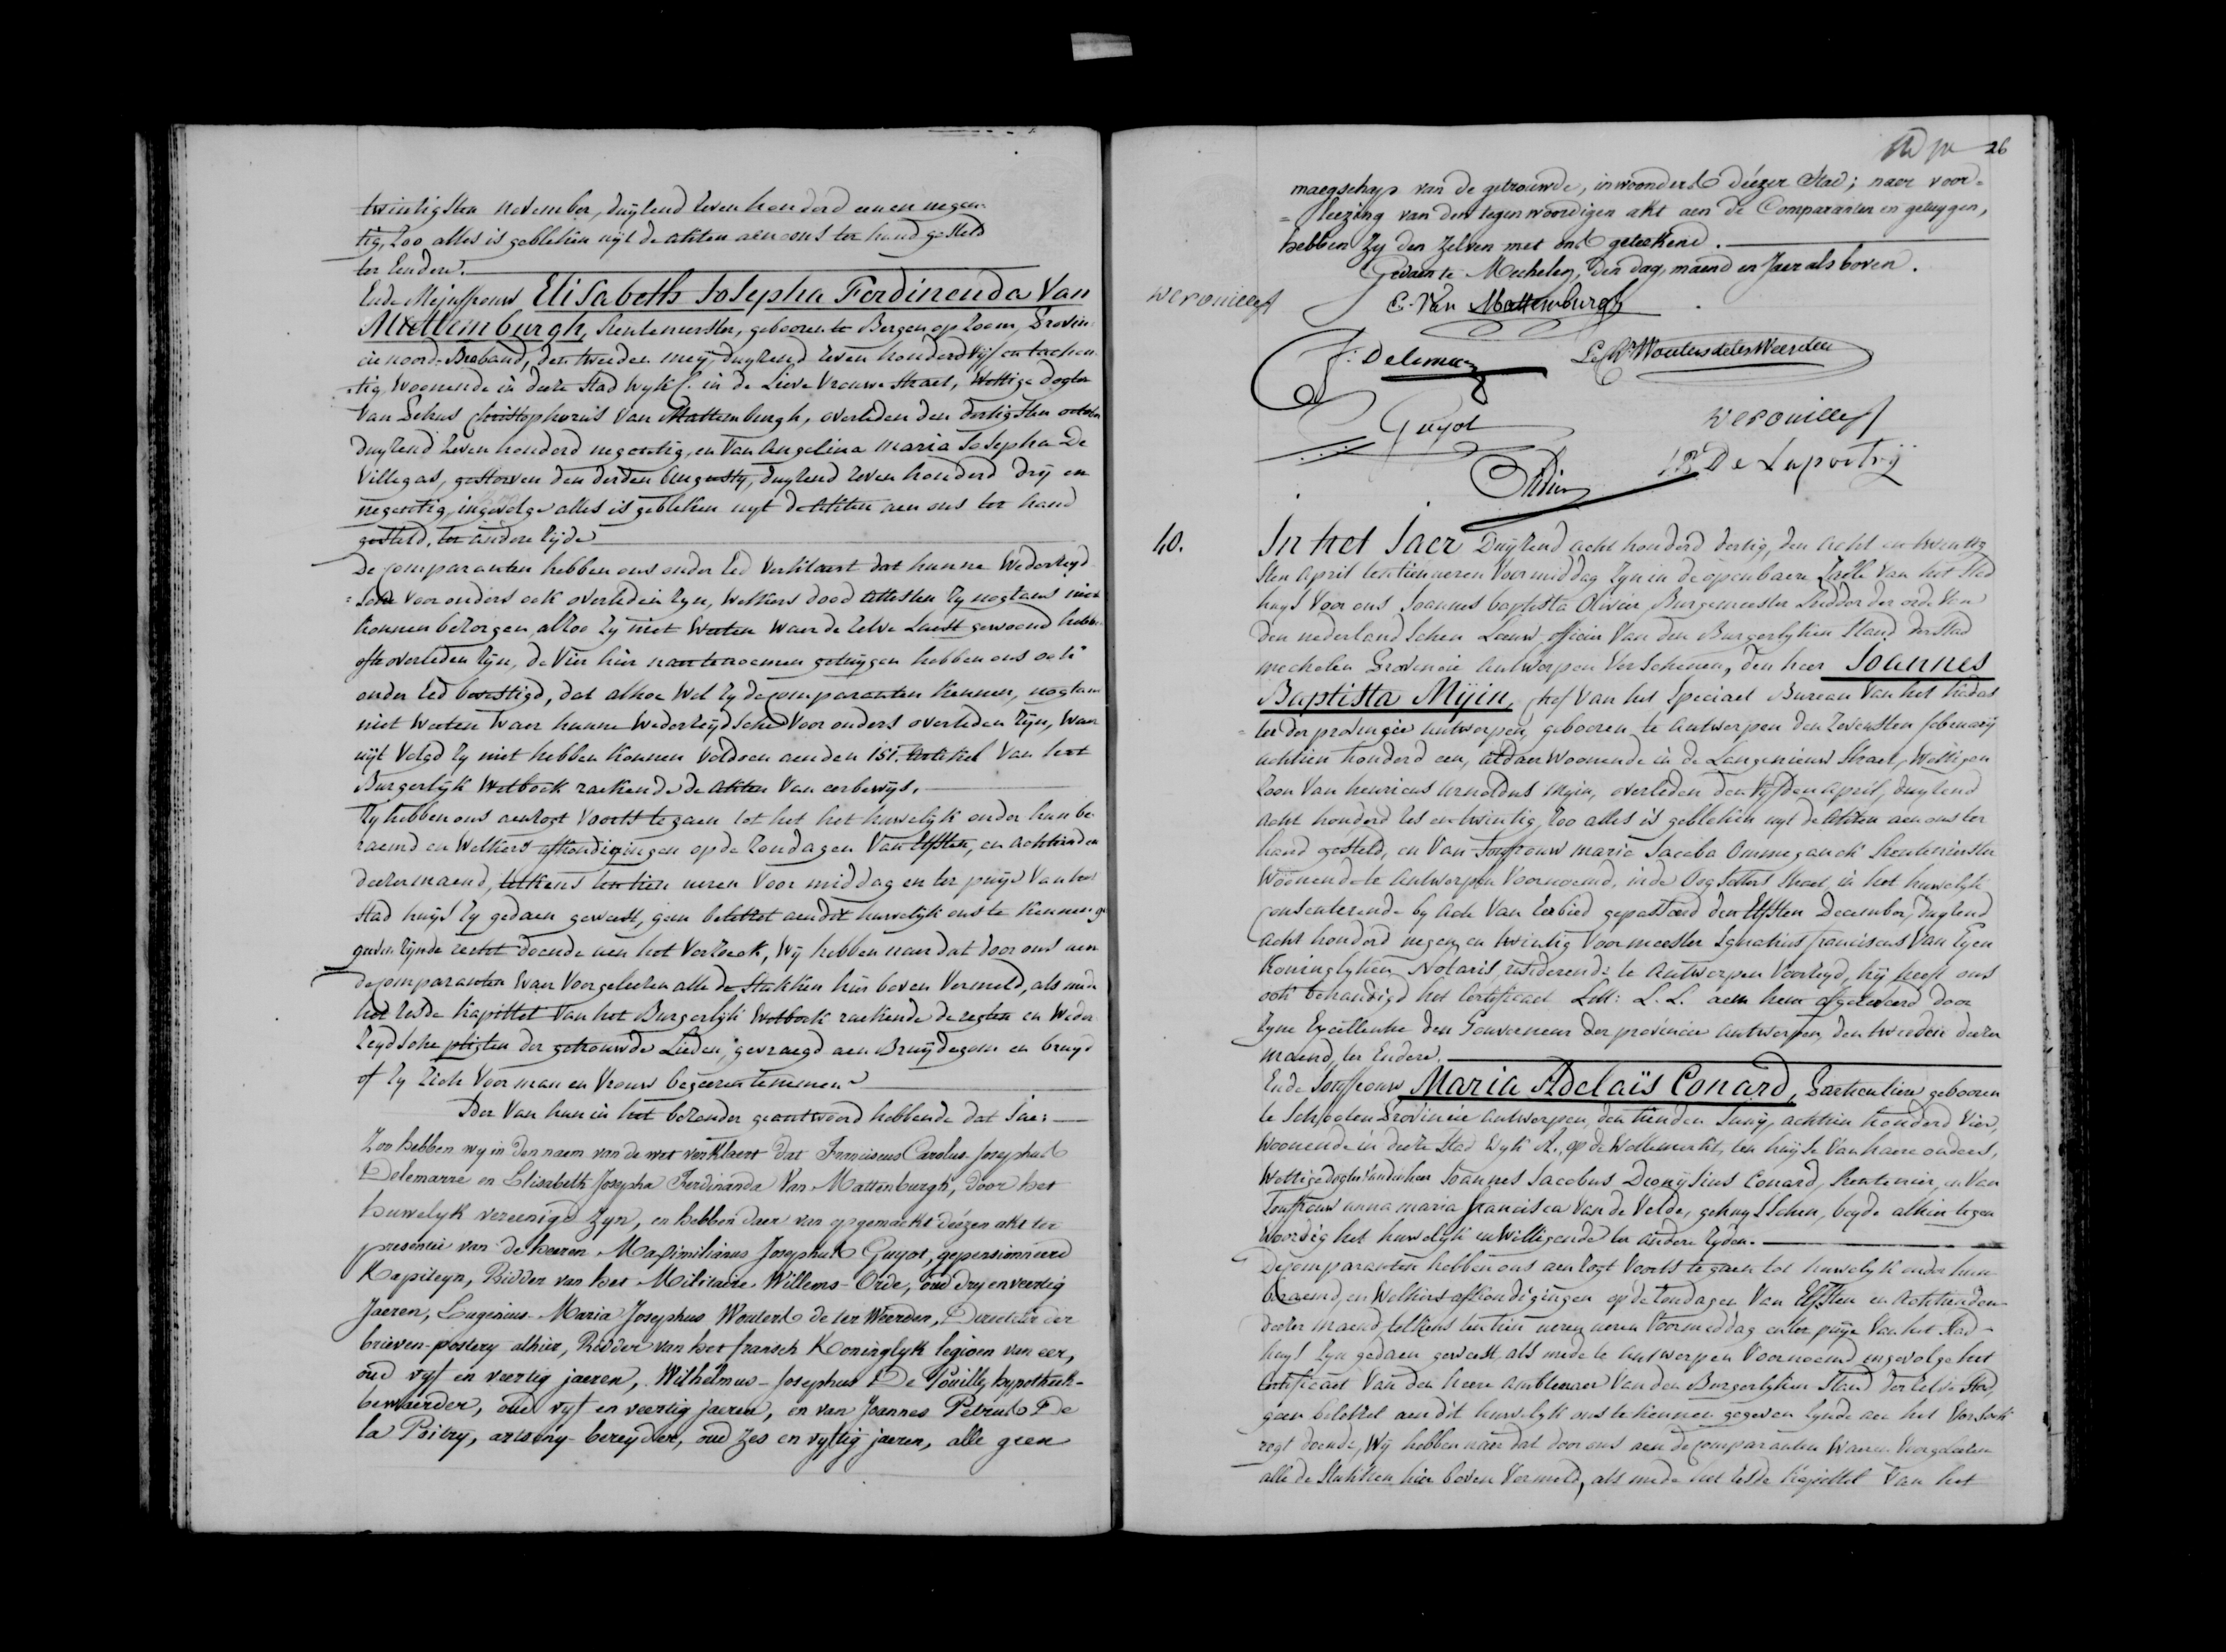 twintigsten november, duyzend zeven honderd eenen negen-
tig, zoo alles is gebleken uyt de akten aen ons ter hand gesteld
ter eendere.
Ende Mejuffrouw Elisabeth Josepha Ferdinenda Van
Mattemburgh, Rentenierster, gebooren te Bergen op Zoom, Provin-
cie noord-Braband, den tweeden mey, duyzend zeven honderd vyf en tachen-
tig, woonende in deeze Stad wyk f. in de Lieve Vrouwe Straet, Wettige dogter
van Johannes Christophorus Van Mattemburgh, overleden den dertigsten october
duyzend zeven honderd negentig, en van Angelina Maria Josepha De
Villegas, gestorven den derden Augusty, duyzend zeven honderd dry en
negentig, ingevolge alles is gebleken uyt de akten aen ons ter hand
gesteld, ter andere zyde
De comparanten hebben ons onder Eed verklaert dat hunne wederzyd-
sche voor onders ook overleden zyn, welkers dood attesten zy nogtans niet
konnen bezorgen, alzoo zy niet weeten waer de zelve laest gewoond hebben
ofte overleden zyn, de vier hier naer te noemen getuygen hebben ons ook
onder Eed bevestigd, dat alhoe wel zy de comparanten kennen, nogtans
niet weeten waer hunne wederzydsche voor onders overleden zyn, waer
uyt volgd zy niet hebben konnen voldoen aen den 151. artikel van het
Burgerlyk Wetboek raekende de akten van eerbewys.
Zy hebben ons aenzogt voorts te gaen tot het het huwelyk onder hun be-
raemd en welkers afkondigingen op de zondagen van elfsten, en achttienden
deezer maend, telkens ten tien ueren voor middag en ter puye van het
Stad huys zy gedaen geweest, geen beletsel aen dit huwelyk ons te kennen ge-
geven zynde regt doende aen het verzoek, Wy hebben naer dat door ons aen
de comparanten waer voorgelezen alle de stukken hier boven vermeld, als mede
het zesde kapittel van het Burgerlyk Wetboek raekende de regten en weder
zydsche pligten der getrouwde Lieden, gevraegd aen Bruydegom en bruyd
of zy zich voor man en vrouw begeeren te nemen
Der van hun in het bezonder geantwoord hebbende dat Jae;
Zoo hebben wy in den naem van de wet verklaert dat Franciscus Carolus Josephus
Delemarre en Elisabeth Josepha Ferdinanda Van Mattenburgh, door het
huwelyk vereenigd zyn, en hebben daer van opgemaekt deézen akt ter
presentie van de heeren Maximilianus Josephus Guyot, gepensionneerd
Kapiteyn, Ridder van het Militaire Willems-Orde, oud dry en veertig
Jaeren, Eugenius Maria Josephus Wouters de ter Weerden, Directeur der
brieven-postery alhier, Ridder van het fransch Koninglyk legioen van eer,
oud vyf en veertig jaeren, Wilhelmus-Josephus De Pouilly hypotheek-
bewaerder, oud vyf en veertig jaeren, en van Joannes Petrus De
la Poitry, artseny-bereyder, oud zes en vyftig jaeren, alle geen
26
maegschap van de getrouwde, inwoonders déézer Stad; naer voor-
leezing van den tegenwoordigen akt aen de Comparanten en getuygen,
hebben zy den zelven met ons geteekend.
Gedaen te Mechelen, den dag, maend en Jaer als boven.
E. Van Mattemburgh
J. Delemarre
Wouters de ter Weerden
Guyot
De Lapoitry
40.
In het Jaer Duyzend acht honderd dertig, den acht en twintig
sten April ten tien ueren voormiddag zyn in de openbaere Zaele van het Stad
huys voor ons Joannes baptista Olivier, Burgemeester Ridder der orde van
Den nederlandschen Leeuw, officier van den Burgerlyken Stand der Stad
mechelen Provincie antwerpen verschenen, den heer Joannes
Baptista Myin, chef van het Speciael Bureau van het Kadas
ter der provincie antwerpen, gebooren te antwerpen den zevensten february
achtien honderd een, aldaer woonende in de Langenieuw Straet, Wettigen
Zoon van henricus arnoldus Myin, overleden den vyfden april, duyzend
acht honderd zes en twintig, zoo alles is gebleken uyt de akten aen ons ter
hand gesteld, en van Jouffrouw Maria Jacoba Ommeganck Rentenierster
woonende te Antwerpen voornoemd, in de Oog Straet, in het huwelyk
consenterende by acte van Eerbied gepasseerd den Elfsten December, duyzend
acht honderd negen en twintig voor meester Ignatius franciscus Van Eyen
Koninglyken Notaris, residerende te Antwerpen voorzeyd, hy heeft ons
ook behandigd het Certificaet Litt: L. L. aen hem afgeleverd door
zyne Excellentie den Gouverneur der provincie antwerpen, den tweeden deezer
maend, ter Eendere.
Ende Jouffrouw Maria Adelaïs Conard, Particuliere gebooren
te Schooten Provincie antwerpen, den tienden Juny, achtien honderd vier,
woonende in deeze Stad wyk A, op de Wollemerkt, ten huyse van haere ouders,
wettige dogter van den heer Joannes Jacobus Dionysius Conard, Rentenier, en van
Jouffrouw anna maria francisca Van de Velde, gehuysschen, beyde alhier tegen
woordig het huwelyk inwilligende ter andere zyden.
De comparanten hebben ons aenzogt voorts te gaen tot huwelyk onder hun
beraemd, en welkers afkondigingen op de zondagen van Elfsten en Achttienden
deezer maend, telkens ten tien ueren ueren voormiddag en ter puye van het Stad-
huys zyn gedaen geweest, als mede te antwerpen voornoemd ingevolge het
certificaet van den heere ambtenaer van den Burgerlyken Stand der zelve Stad,
geen beletsel aen dit huwelyk ons te kennen gegeven zynde aen het Verzoek
regt doende, Wy hebben naer dat door ons aen de comparanten waeren voorgelezen
alle de stukken hier boven vermeld, als mede het zesde kapittel van het